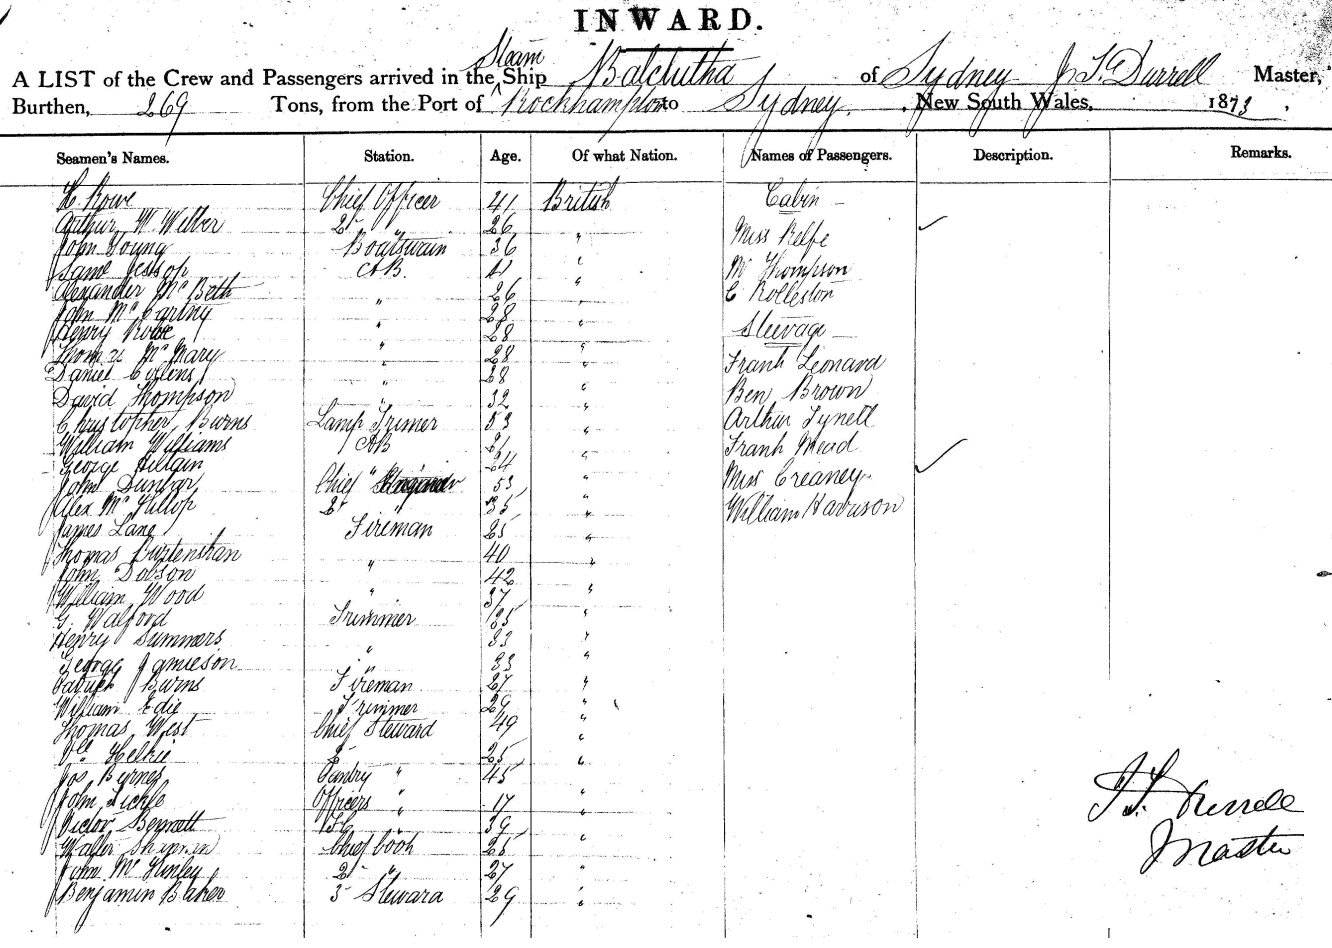 INWARD.
Steam
A LIST of the Crew and Passengers arrived in the Ship Balclutha of Sydney J. S. Durrell Master,
Burthen, 269 Tons, from the Port of Rockhampton to Sydney, New South Wales, 1873,
Seamen's Names. Station. Age. Of what Nation. Names of Passengers. Description. Remarks.
H Rowe Chief Officer 41 British Cabin
Arthur W Welber 2d " 26 "
John Young Boatswain 36 " Miss Relfe
Saml Jessop AB. 41 " Mr Thompson
Alexander McBeth " 26 " C Rolleston
John McCartny " 28 "
Henry Rowe " 28 " Steerage
Thomas McMary " 28 "
Daniel Collens " 28 " Frank Leonard
David Thompson " 32 " Ben Brown
Christopher Burns Lamp Trimer 53 " Arthur Tynell
William Williams AB 21 " Frank Mead
George Hilgin " 24 "
John Dunbar Chief Engineer 53 " Miss Creaney
Alex McKillop 2d " 35 " William Harrison
James Lane Fireman 25 "
Thomas Burtenshan " 40 "
John Dobson " 42 "
William Wood " 37 "
G. Walford Trimmer 35 "
Henry Summers " 33 "
George Jamieson " 33 "
Patrick Burns Fireman 27 "
William Edie Trimmer 29 "
Thomas West Chief Steward 49 "
Helkie 2 " 25 "
Jos Byrnes Pantry " 45 "
John Tickle Officers " 17 "
Victor Bennett " 39 "
Walter Chief Cook 25 "
John McKinley 2d " 27 "
Benjamin Baker 3 Steward 29 "
J. S. Durrell
Master